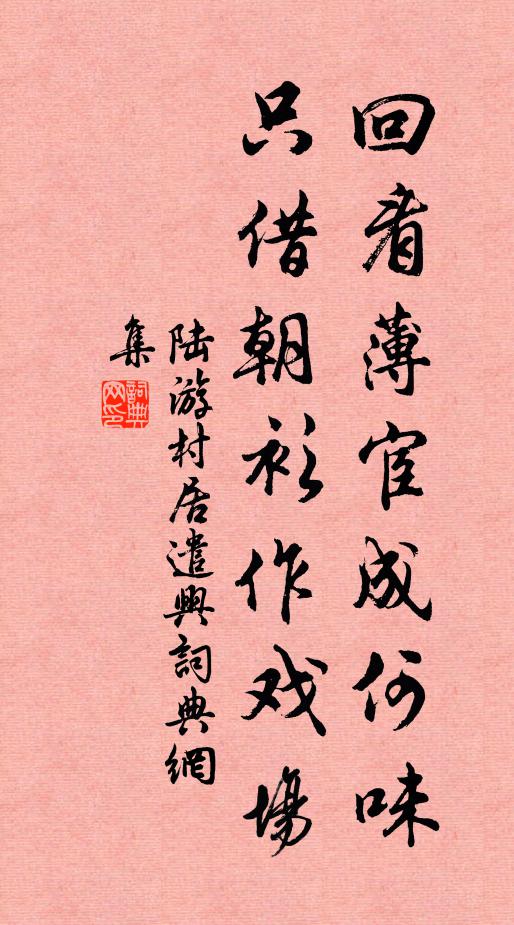 回看薄宦成何味
只借朝衫作戏場
陆游村居遣興詞典網
集
詞典
网印